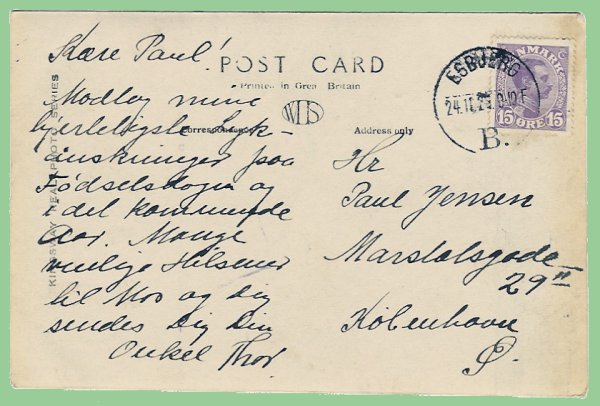 Kære Paul!
POST CARD
Printed in Great Britain
WHS
Correspondence
Address only
KINGSWAY REAL PHOTO SERIES
Modtag mine
hjerteligste Lyk-
ønskninger paa
Fødselsdagen og
det kommende
Aar. Mange
venlige Hilsener
til Mor og dig
sendes Dig Din
Onkel Thor
DANMARK
15 ØRE 15
ESBJERG
24.11.
B.
Hr
Paul Jensen
Marstalsgade
29 II
København
Ø.